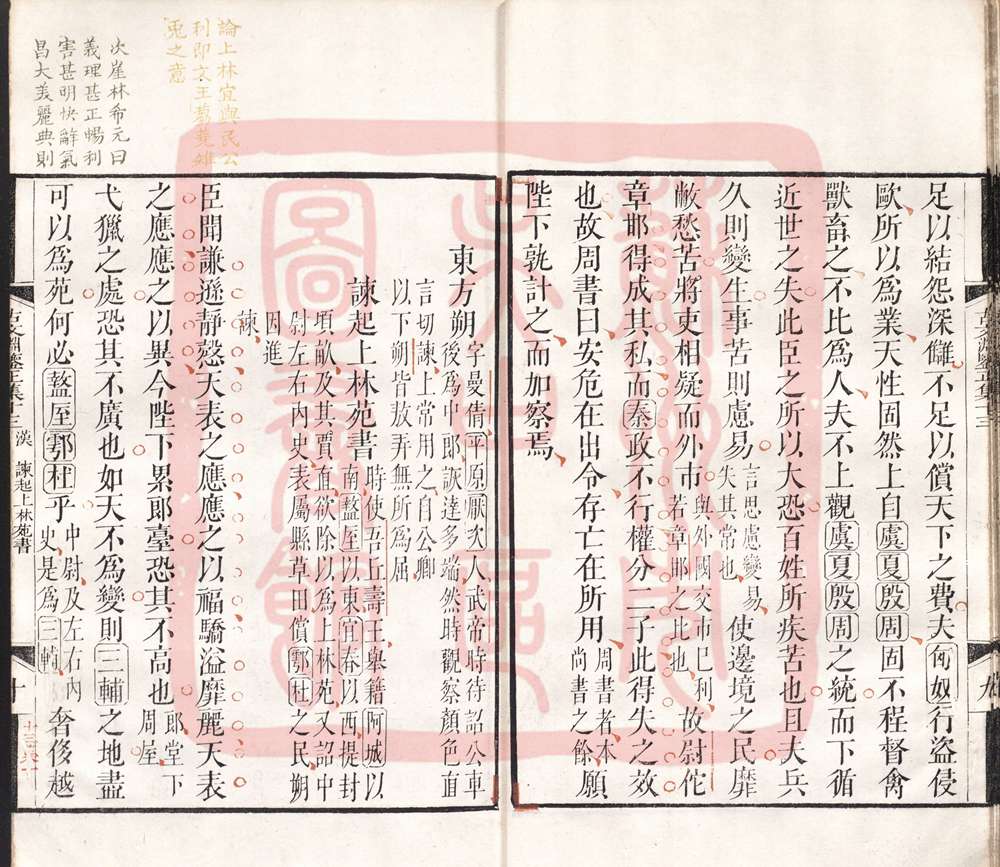 足以結怨深讎不足以償天下之費夫匈奴行盜侵
敺所以為業天性固然上自虞夏殷周固不程督禽
獸畜之不比為人夫不上觀虞夏殷周之統而下循
近世之失此臣之所以大恐百姓所疾苦也且夫兵
久則變生事苦則慮易言思慮變易失其常也使邊境之民靡
敝愁苦將吏相疑而外市與外國交市巳利若章邯之比也故尉佗
章邯得成其私而秦政不行權分二子此得失之效
也故周書曰安危在出令存亡在所用周書者本尚書之餘願
陛下孰計之而加察焉
東方朔字曼倩平原厭次人武帝時待詔公車後為中郎詼達多端然時觀察顏色直
言切諫上常用之自公卿以下朔皆敖弄無所為屈
諫起上林苑書時使吾丘壽王舉籍阿城以南盩厔以東宜春以西提封
頃畝及其賈直欲除以為上林苑又詔中尉左右內史表屬縣草田償鄠杜之民朔
因進諫
臣聞謙遜靜慤天表之應應之以福驕溢靡麗天表
之應應之以異今陛下累郎臺恐其不高也郎堂下周屋
弋獵之處恐其不廣也如天不為變則三輔之地盡
可以為苑何必盩厔鄠杜乎中尉及左右內史是為三輔奢侈越
論上林宜與民公
利即文王芻蕘雉
兎之意
次崖林希元曰
義理甚正暢利
害甚明快辭氣
昌大美麗典則
漢 諫起上林苑書
十
九